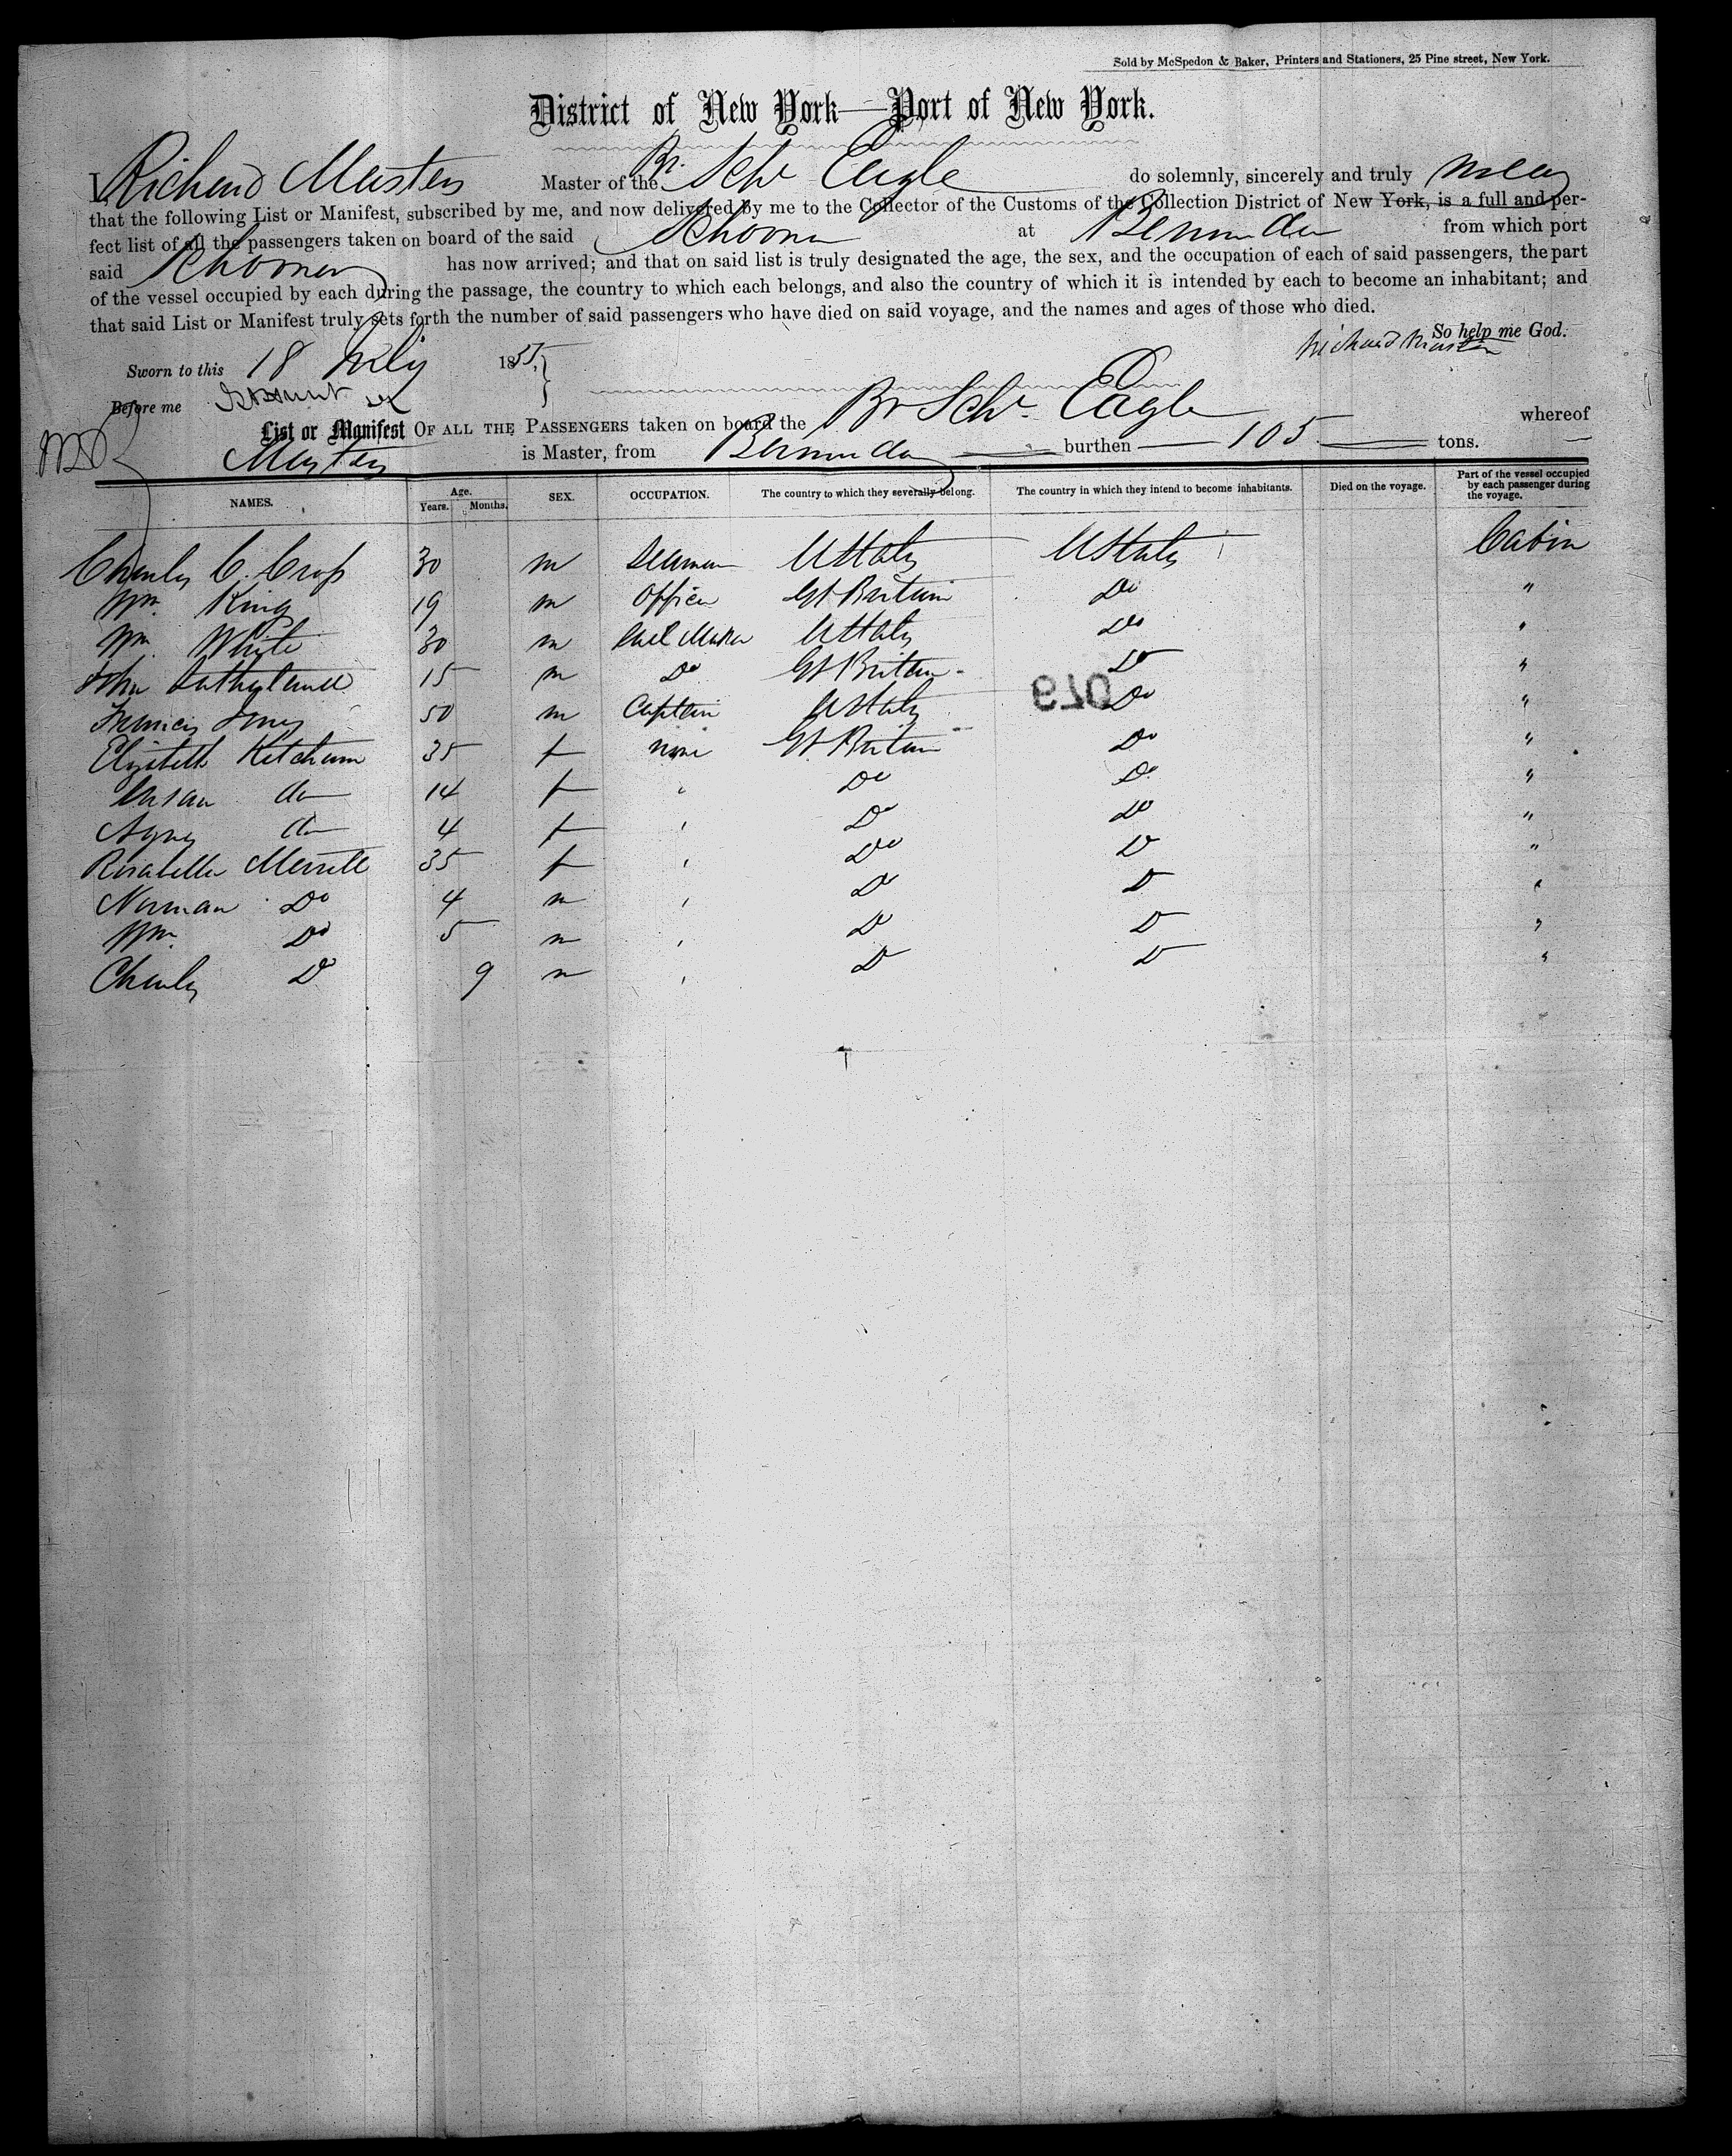 Sold by McSpedon & Baker, Printers and Stationers, 25 Pine street, New York.
District of New York—Port of New York.
I, Richard Masters Master of the Br. Schr Eagle do solemnly, sincerely and truly swear
that the following List or Manifest, subscribed by me, and now delivered by me to the Collector of the Customs of the Collection District of New York, is a full and per-
fect list of all the passengers taken on board of the said Schooner at Bermuda from which port
said Schooner has now arrived; and that on said list is truly designated the age, the sex, and the occupation of each of said passengers, the part
of the vessel occupied by each during the passage, the country to which each belongs, and also the country of which it is intended by each to become an inhabitant; and
that said List or Manifest truly sets forth the number of said passengers who have died on said voyage, and the names and ages of those who died.
So help me God.
Richard Masters
Sworn to this 18 July 1855
Before me
List or Manifest OF ALL THE PASSENGERS taken on board the Br Schr. Eagle whereof
Masters is Master, from Bermuda burthen 105 tons.
NAMES. Age. Years. Months. SEX. OCCUPATION. The country to which they severally belong. The country in which they intend to become inhabitants. Died on the voyage. Part of the vessel occupied by each passenger during the voyage.
Charles C. Cross 30 m Seaman UStates UStates Cabin
Wm. King 19 m Officer Gt Britain Do "
Wm. White 30 m Sail Maker UStates Do "
John 15 m Do Gt Britain Do "
Francis Jones 50 m Captain UStates Do "
079
Elizabeth Ketchum 35 f none Gt Britain Do "
Susan do 14 f " Do Do "
Agnes do 4 f " Do Do "
Rosabella Merrill 35 f " Do Do "
Norman Do 4 m " Do Do "
Wm. Do 5 m " Do Do "
Charles Do 9 m " Do Do "